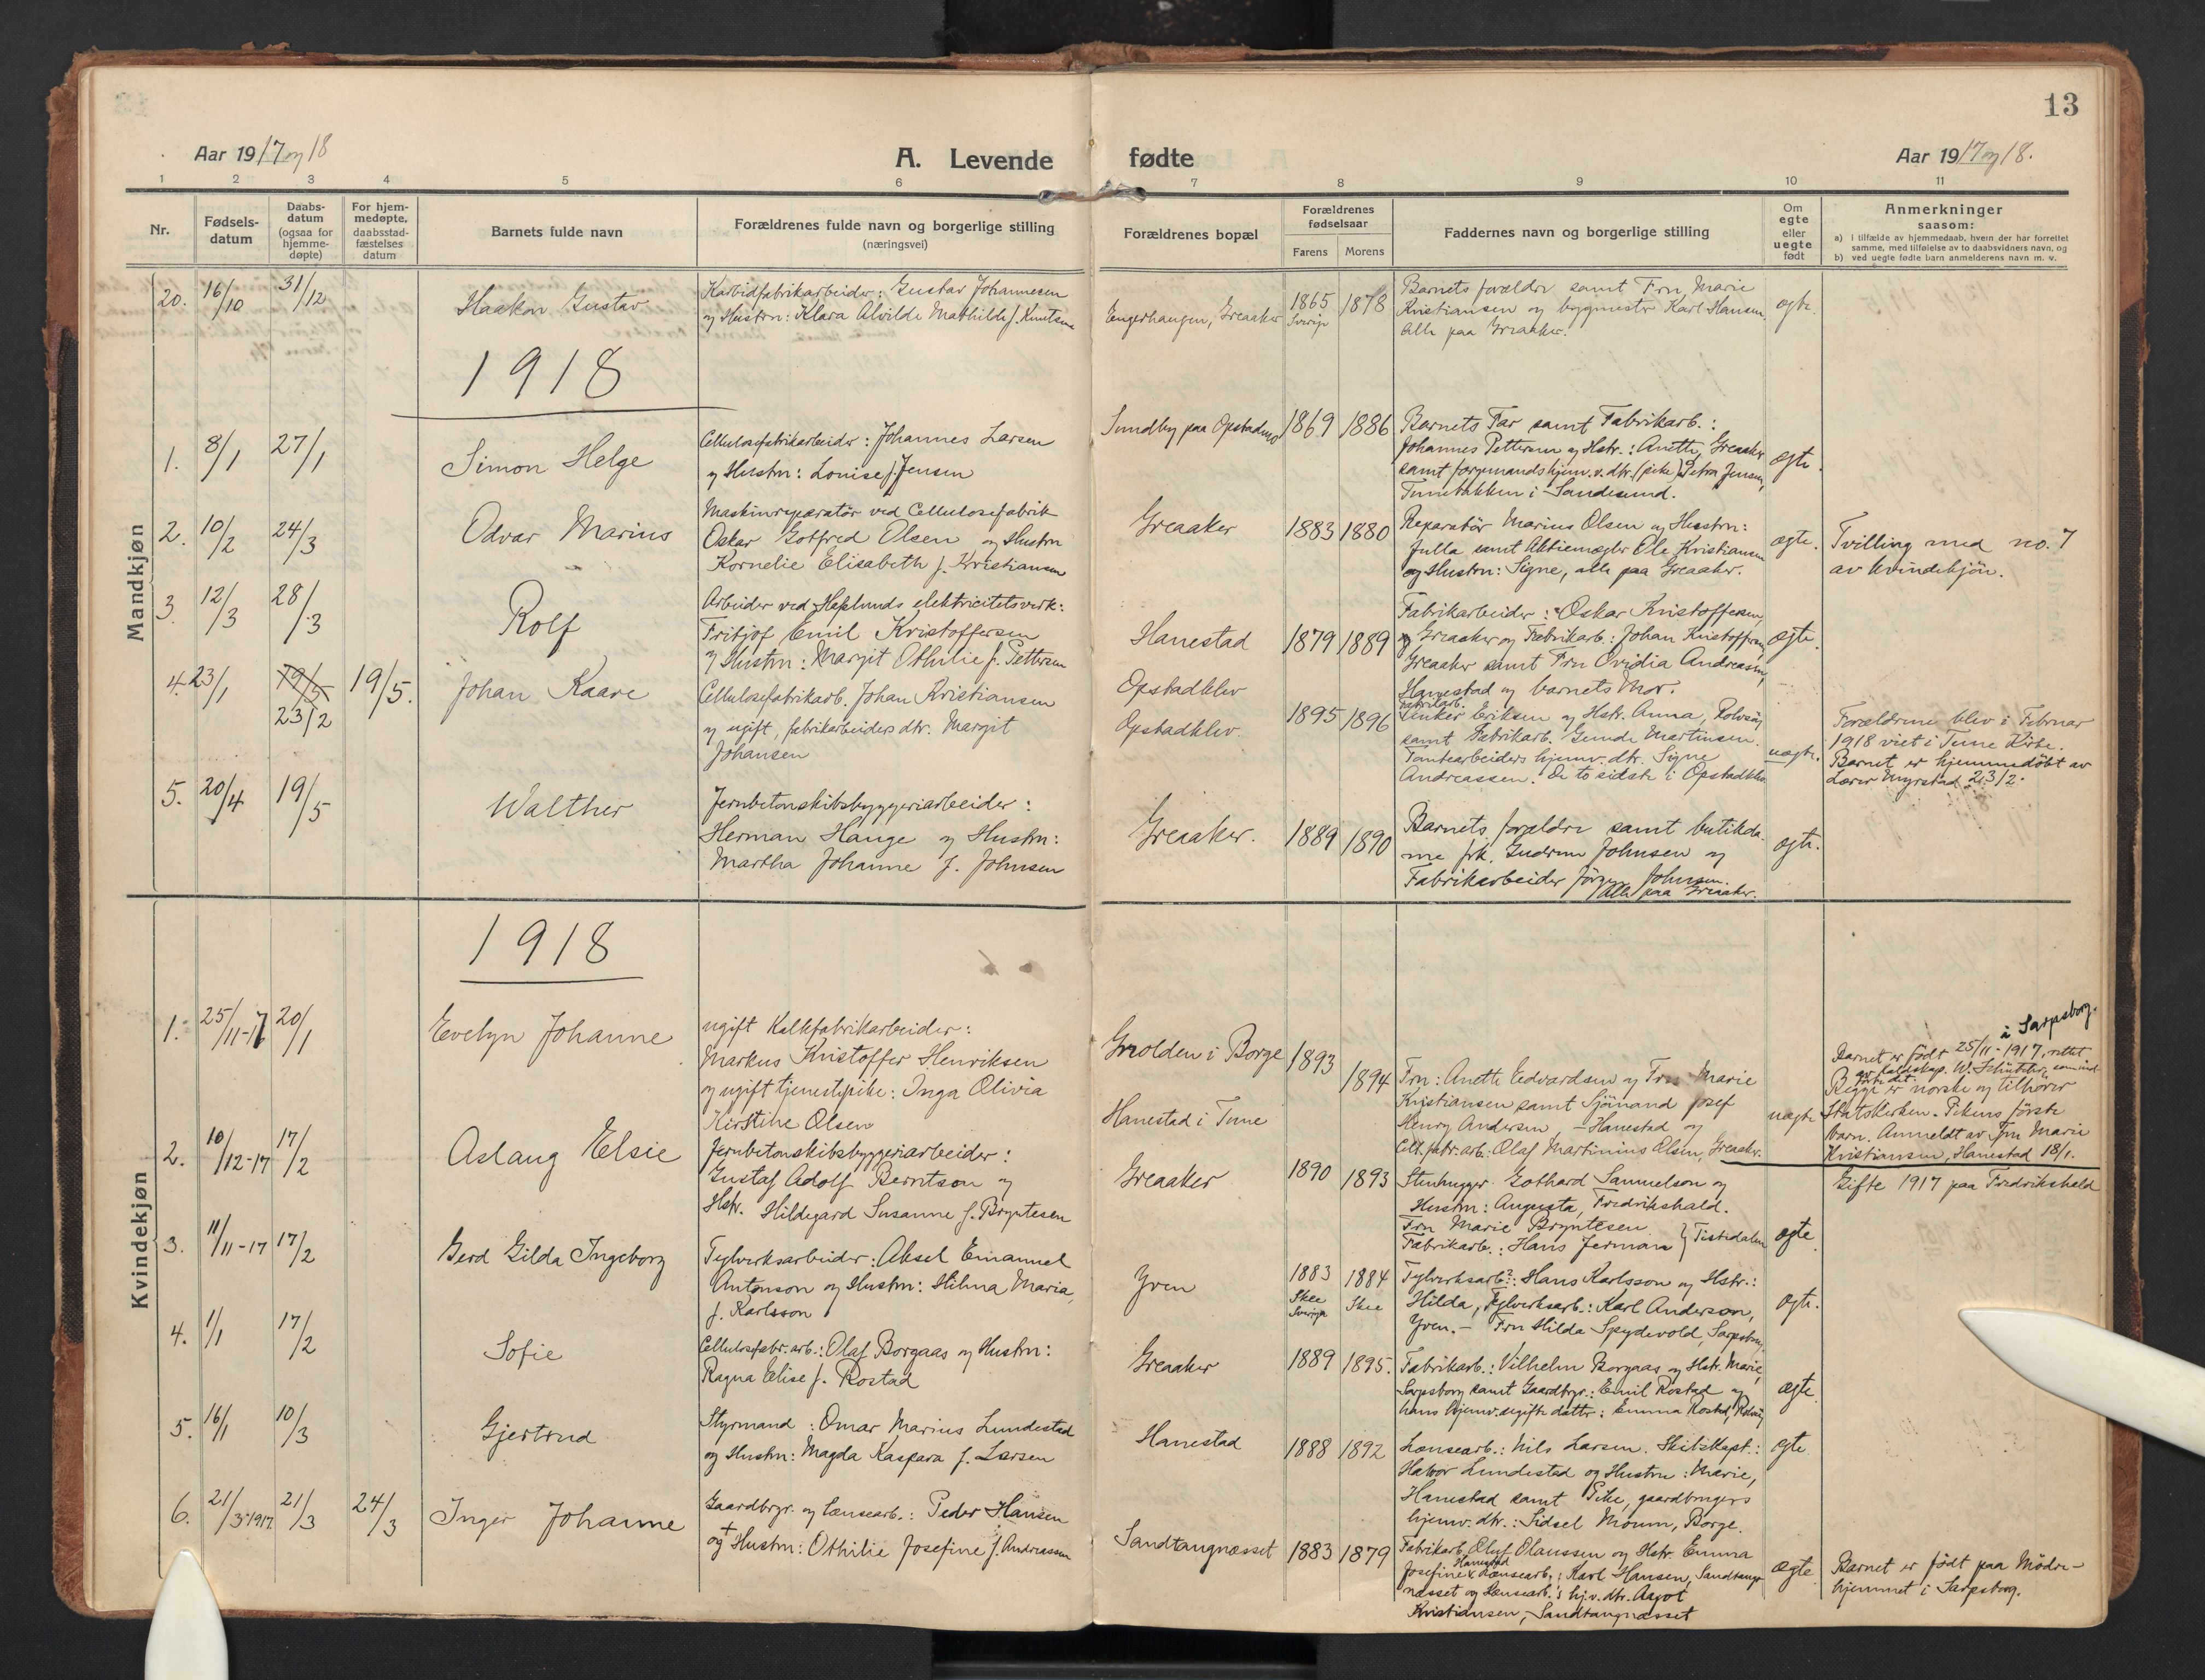 13
Aar 1917 og 18
A. Levende fødte
Aar 1917 og 18.
1 2 3 4 5 6 7 8 9 10 11
Nr.
Fødselsdatum
Daabsdatum (ogsaa for hjemmedøpte)
For hjemmedøpte, daabsstadfæstelses datum
Barnets fulde navn
Forældrenes fulde navn og borgerlige stilling
(næringsvei)
Forældrenes bopæl
Forældrenes fødselsaar
Farens Morens
Faddernes navn og borgerlige stilling
Om egte eller uegte født
Anmerkninger
saasom:
a) i tilfælde av hjemmedaab, hvem der har forrettet
samme, med tilføielse av to daabsvidners navn, og
b) ved uegte fødte barn anmelderens navn m. v.
Mandkjøn
20. 16/10 31/12 Haakon Gustav
Karbidfabrikarbeider: Gustav Johannesen
og Hustru: Klara Alvilde Mathilde f. Knutsen
Engerhaugen, Greaaker
1865 Sverige 1878
Barnets forældre samt Fru Marie
Kristiansen og bygmester Karl Hansen.
Alle paa Greaaker.
egte.
1918
1. 8/1 27/1 Simon Helge
Cellulosefabrikarbeider: Johannes Larsen
og Hustru: Louise f. Jensen
Sundby paa Opstadmo
1869 1886
Barnets Far samt Fabrikarb.:
Johannes Pettersen og Hstr.: Anette, Greaaker
samt formandshjem.v. dtr. (pike) Petra Jensen,
Tunebakken i Sandesund.
egte.
2. 10/2 24/3 Odvar Marius
Maskinreparatør ved Cellulosefabrik
Oskar Gotfred Olsen og Hustru
Kornelie Elisabeth f. Kristiansen
Greaaker
1883 1880
Reparatør Marius Olsen og Hustru:
Julla samt Aktiemægler Ole Kristiansen
og Hustru: Signe, alle paa Greaaker.
egte.
Tvilling med no. 7
av kvindekjøn.
3. 12/3 28/3 Rolf
Arbeider ved Hafslunds elektricitetsverk:
Fritjof Emil Kristoffersen
og Hustru: Margit Othilie f. Pettersen
Hanestad
1879 1889
Fabrikarbeider: Oskar Kristoffersen,
Greaaker og Fabrikarb.: Johan Kristoffersen,
Greaaker samt Fru Ovidia Andreassen,
Hanestad og barnets Mor.
egte.
4. 23/1 19/5 23/2 19/5. Johan Kaare
Cellulosefabrikarb. Johan Kristiansen
og ugift, fabrikarbeiders dtr. Margit
Johansen
Opstadklev
Opstadklev
1895 1896
Fabrikarb.
Einker Eriksen og Hstr. Anna, Rolvsøy
samt Fabrikarb. Gunda Martinsen.
Tomtearbeiders hjemv. dtr. Signe
Andreassen. De to sidste i Opstadklev
uegte.
Forældrene blev i Februar
1918 viet i Tune Kirke.
Barnet er hjemmedøbt av
Lærer Myrstad 23/2.
5. 20/4 19/5 Walther
Jernbetonskibsbyggeriarbeider:
Herman Hauge og Hustru:
Martha Johanne f. Johnsen
Greaaker.
1889 1890
Barnets forældre samt butikda-
me frk. Gudrun Johnsen og
Fabrikarbeider Jørgen Johnsen.
Alle paa Greaaker.
egte.
Kvindekjøn
1918
1. 25/11-17 20/1 Evelyn Johanne
ugift Kalkfabrikarbeider:
Markus Kristoffer Henriksen
og ugift tjenestepike: Inga Olivia
Kirstine Olsen
Grolden i Borge
Hanestad i Tune
1893 1894
Fru: Anette Edvardsen og Fru Marie
Kristiansen samt Sjømand Josef
Henry Andersen, - Hanestad og
Cell.fabr.arb.: Olaf Martinius Olsen, Greaaker.
uegte
i Sarpsborg.
Barnet er født 25/11-1917, rettet
Begge er norske og tilhører
Statskirken. Pikens første
barn. Anmeldt av Fru Marie
Kristiansen, Hanestad 18/1.
2. 10/12-17 17/2 Aslaug Elsie
Jernbetonskibsbyggeriarbeider:
Gustaf Adolf Berntson og
Hstr. Hildegard Susanne f. Bryntesen
Greaaker
1890 1893
Stenhugger Gothard Samuelson og
Hustru: Augusta, Fredrikshald.
Fru Marie Bryntesen
Fabrikarb.: Hans Jerman } Tistedalen
egte
Gifte 1917 paa Fredrikshald
3. 11/11-17 17/2 Gerd Gilda Ingeborg
Teglverksarbeider: Aksel Emanuel
Antonson og Hustru: Hilma Maria,
f. Karlsson
Yven
1883 Skee Sverige 1884 Skee
Teglverksarb.: Hans Karlsson og Hstr.:
Hilda, Teglverksarb.: Karl Anderson,
Yven. - Fru Hilda Spydevold, Sarpsborg
egte.
4. 1/1 17/2 Sofie
Cellulosefabr.arb.: Olaf Borgaas og Hustru:
Ragna Elise f. Rostad
Greaaker
1889 1895.
Fabrikarb.: Vilhelm Borgaas og Hstr. Marie,
Sarpsborg samt Gaardbrgr.: Emil Rostad og
hans hjemv. ugifte datter: Emma Rostad, Rolvsøy
egte
5. 16/1 10/3 Gjertrud
Styrmand: Omar Marius Lundestad
og Hustru: Magda Kaspara f. Larsen
Hanestad
1888 1892
Lænsearb.: Nils Larsen. Skibskapt.:
Halvor Lundestad og Hustru: Marie,
Hanestad samt Pike, gaardbrugers
hjemv. dtr.: Sidsel Moum, Borge.
egte
6. 21/3-1917 21/3 24/3 Inger Johanne
Gaardbrgr. og Lænsearb.: Peder Hansen
og + Hustru: Othilie Josefine f. Andreassen
Sandtangnæsset
1883 1879
Fabrikarb. Oluf Olaussen og Hstr. Emma
Josefine, Hanestad Lænsearb.: Karl Hansen, Sandtang-
næsset og Lænsearb.'s hj.v. dtr. Aagot
Kristiansen, Sandtangnæsset
egte
Barnet er født paa Mødre-
hjemmet i Sarpsborg.